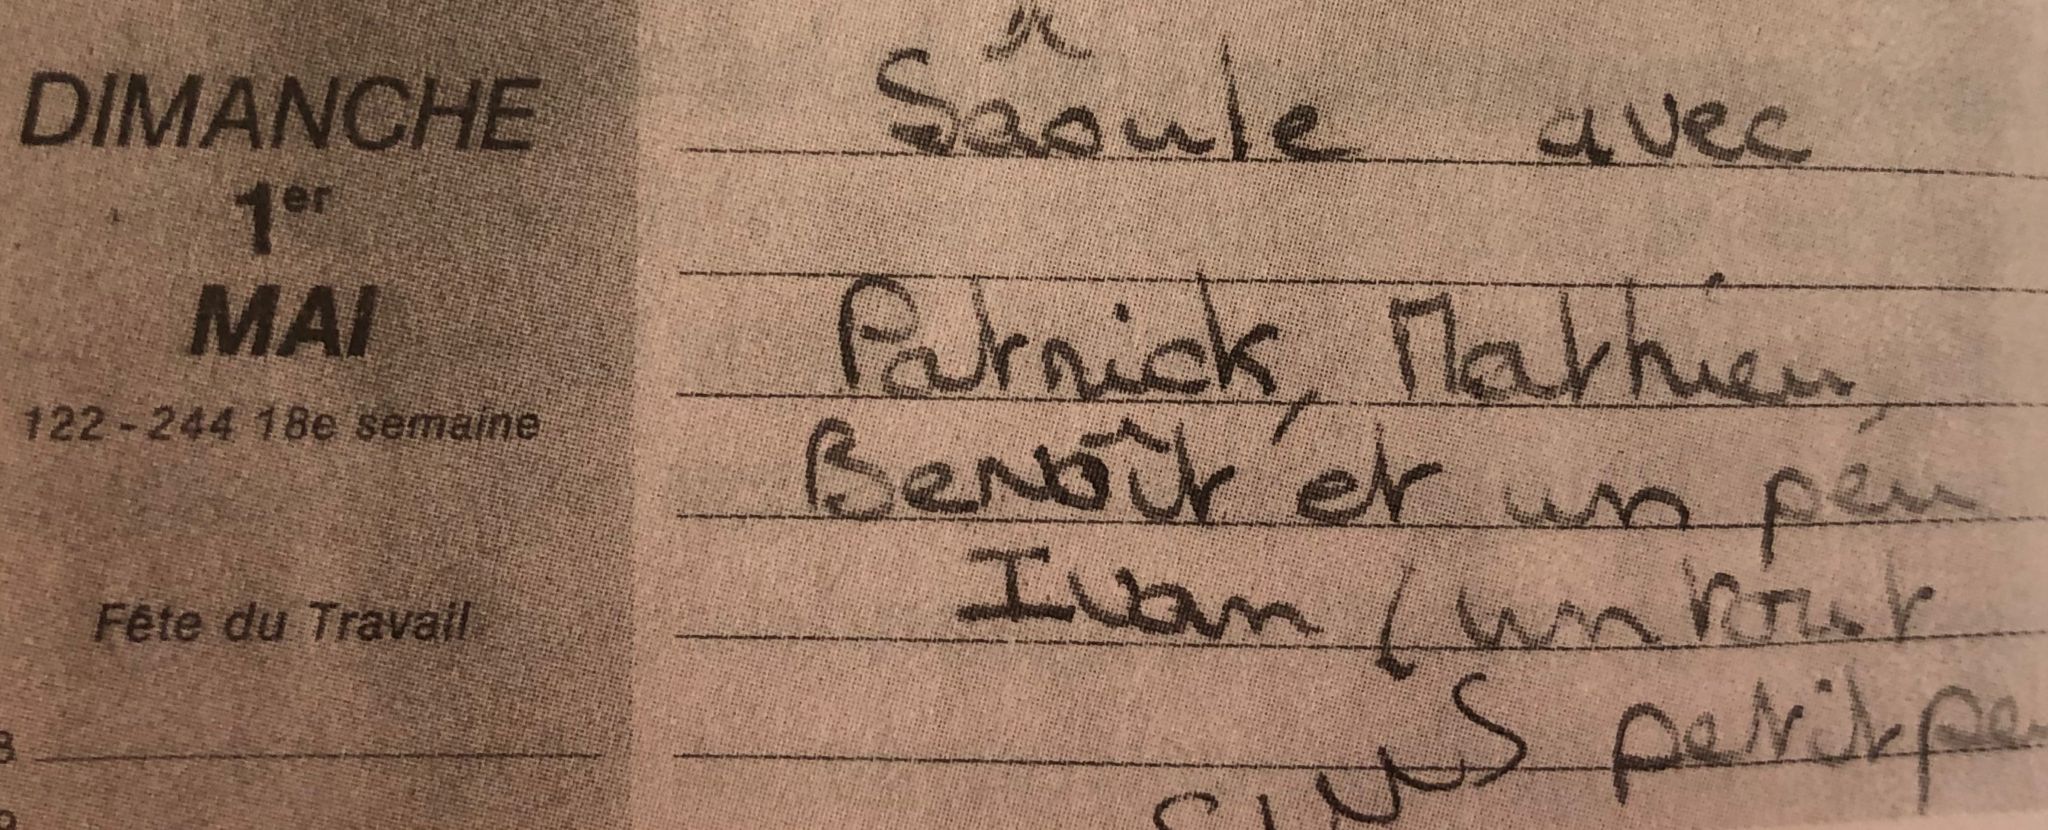 DIMANCHE
1er
MAI
122 - 244 18e semaine
Fête du Travail
Sâoule avec
Patrick, Mathieu,
Benoît et un peu
Ivan (un tout
petit peu